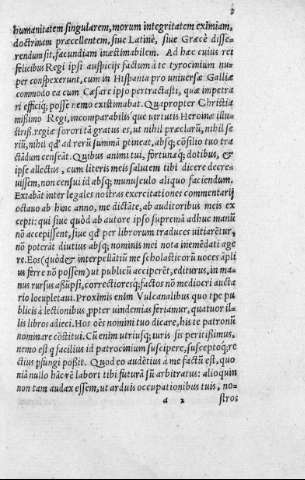 humanitatem singularem, morum integritatem eximiam,
doctrinam præcellentem, siue Latinè, siue Græcè disse-
rendum sit, facundiam inæstimabilem. Ad hæc cuius rei
felicibus Regi ipsi auspicijs factum à te tyrocinium nu-
per conspexerunt, cum in Hispania pro vniuersæ Galliæ
commodo ea cum Cæsare ipso pertractasti, quæ impetra
ri efficiq; posse nemo existimabat. Quapropter Christia
nissimo Regi, incomparabilis quæ virtutis Heroinæ illu-
striss. regiæ sorori tā gratus es, ut nihil præclarū, nihil se
riū, nihil qđ ad rerū summā ptineat, absq; cōsilio tuo tra
ctādum censeāt. Quibus animi tui, fortunæq; dotibus, &
ipse allectus, cum literis meis salutem tibi dicere decre-
uissem, non censui id absq; munusculo aliquo faciendum.
Extabāt inter legales nostras exercitationes commentarij
octauo ab hinc anno, me dictāte, ab auditoribus meis ex
cepti: qui siue quòd ab autore ipso supremā adhuc manū
nō accepissent, siue qđ per librorum traduces uitiarētur,
nō poterāt diutius absq; nominis mei nota inemēdati age
re. Eos (quòd & interpellātiū me scholasticorū uoces āplī
us ferre nō possem) ut publicū acciperēt, editurus, in ma
nus rursus assūpsi, correctioresq; factos nō mediocri aucta
rio locupletaui. Proximis enim Vulcanalibus quo tpe pu
blicis à lectionibus ppter uindemias feriamur, quatuor il-
lis libros adieci. Hos oēs nomini tuo dicare, his te patronū
nominare cōstitui. Cū enim utriusq; iuris sis peritissimus,
nemo est q facilius id patrocinium suscipere, susceptoq; re
ctius pfungi possit. Quod eo audētius à me factū est, quo
niā nullo hāctenꝰ labori tibi futurā sū arbitratus: alioquin
non tam audax essem, ut arduis occupationibus tuis, no-
a 2 stros